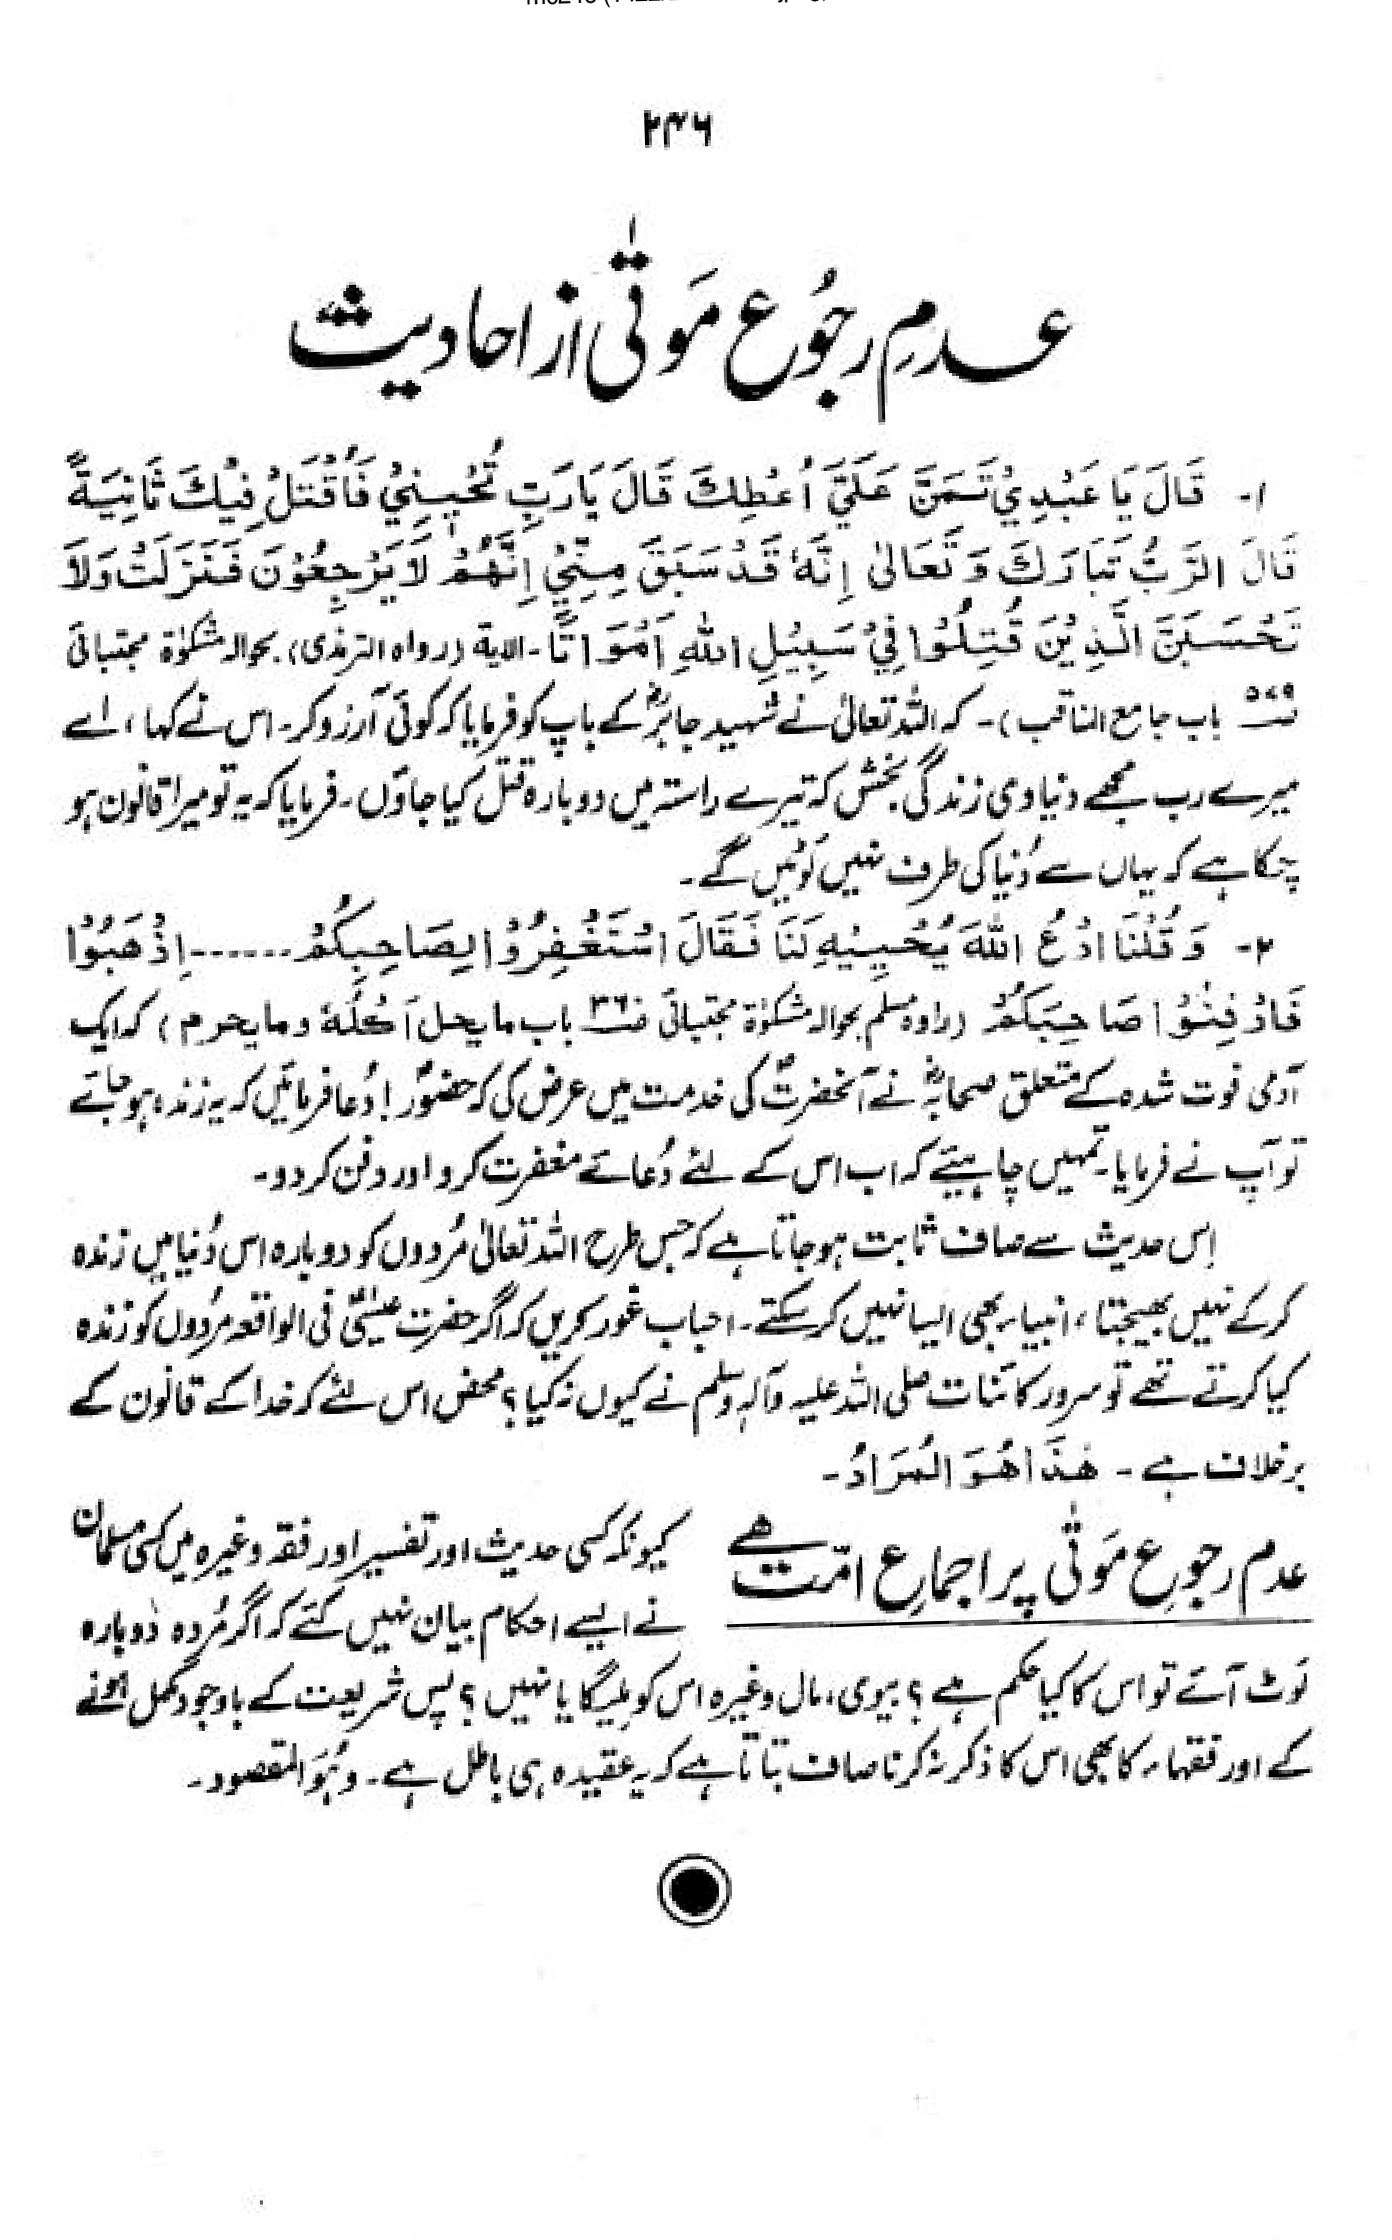 ۲۴۶
عدمِ رجُوع مَوتٰی از احادیث
۱۔ قَالَ يَا عَبْدِيْ تَمَنَّ عَلَيَّ اُعْطِكَ قَالَ يَا رَبِّ تُحْيِيْنِيْ فَاُقْتَلُ فِيْكَ ثَانِيَةً
قَالَ الرَّبُّ تَبَارَكَ وَتَعَالٰى اِنَّهٗ قَدْ سَبَقَ مِنِّيْ اِنَّهُمْ لَا يَرْجِعُوْنَ فَنَزَلَتْ وَلَا
تَحْسَبَنَّ الَّذِيْنَ قُتِلُوْا فِيْ سَبِيْلِ اللهِ اَمْوَاتًا۔ الایة (رواہ الترمذی)۔ بحوالہ مشکوٰۃ مجتبائی
۵۷۹ باب جامع المناقب)۔ کہ اللہ تعالیٰ نے شہید جابرؓ کے باپ کو فرمایا کہ کوئی آرزو کر۔ اس نے کہا، اے
میرے رب مجھے دنیاوی زندگی بخش کہ تیرے راستہ میں دوبارہ قتل کیا جاؤں۔ فرمایا کہ یہ تو میرا قانون ہو
چکا ہے کہ یہاں سے دُنیا کی طرف نہیں لَوٹیں گے۔
۲۔ وَقُلْنَا ادْعُ اللهَ يُحْيِيْهِ لَنَا فَقَالَ اسْتَغْفِرُوْا لِصَاحِبِكُمْ ۔۔۔۔۔۔ اِذْهَبُوْا
فَادْفِنُوْا صَاحِبَكُمْ (رواہ مسلم بحوالہ مشکوٰۃ مجتبائی ۳۶۰ باب ما یحل اَکْلُہٗ وما یحرم) کہ ایک
آدمی فوت شدہ کے متعلق صحابہؓ نے آنحضرتؐ کی خدمت میں عرض کی کہ حضورؐ! دُعا فرمائیں کہ یہ زندہ ہو جائے
تو آپ نے فرمایا۔ تمہیں چاہیئے کہ اب اس کے لئے دُعائے مغفرت کرو اور دفن کر دو۔
اِس حدیث سے صاف ثابت ہو جاتا ہے کہ جس طرح اللہ تعالیٰ مُردوں کو دوبارہ اس دُنیا میں زندہ
کر کے نہیں بھیجتا، انبیاء بھی ایسا نہیں کر سکتے۔ احباب غور کریں کہ اگر حضرت عیسٰیؑ فی الواقعہ مردوں کو زندہ
کیا کرتے تھے تو سرور کائنات صلی اللہ علیہ وآلہٖ وسلم نے کیوں نہ کیا؟ محض اس لئے کہ خدا کے قانون کے
برخلاف ہے۔ هٰذَا هُوَ الْمُرَادُ۔
عدم رجوعِ مَوتٰی پر اجماعِ امّت ہے
کیونکہ کسی حدیث اور تفسیر اور فقہ وغیرہ میں کسی مسلمان
نے ایسے احکام بیان نہیں کئے کہ اگر مُردہ دوبارہ
لَوٹ آئے تو اس کا کیا حکم ہے؟ بیوی، مال وغیرہ اس کو ملیگا یا نہیں؟ پس شریعت کے باوجود مکمل ہونے
کے اور فقہاء کا بھی اس کا ذکر نہ کرنا صاف بتاتا ہے کہ یہ عقیدہ ہی باطل ہے۔ وہُوَ المقصود۔